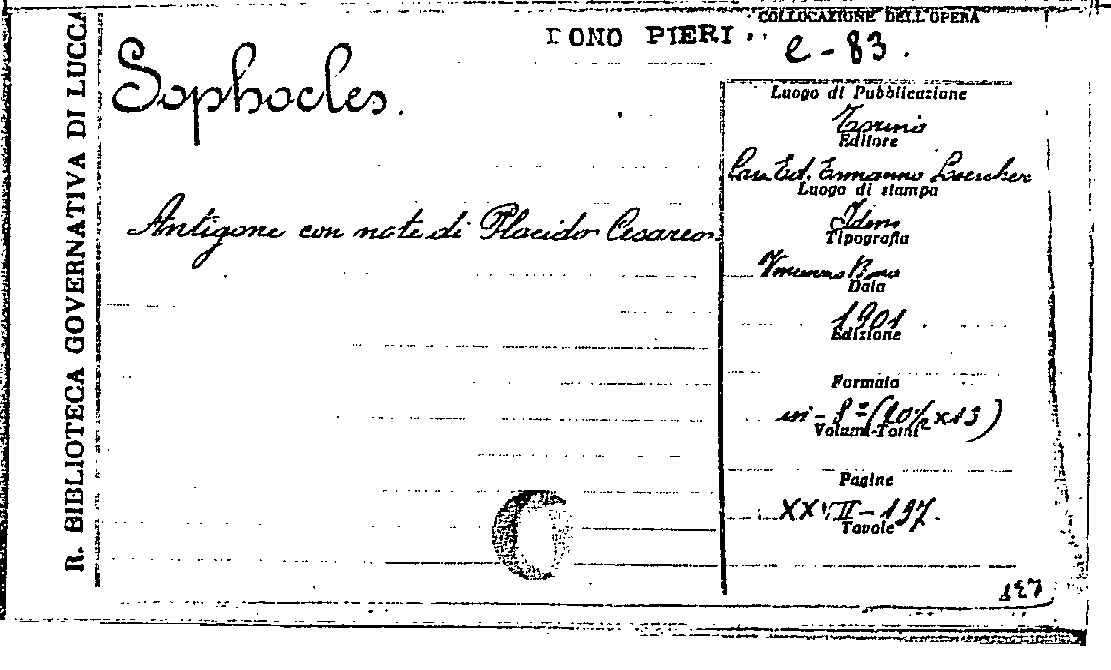 R. BIBLIOTECA GOVERNATIVA DI LUCCA
DONO PIERI
COLLOCAZIONE DELL'OPERA
e-83.
Sophocles.
Antigone con note di Placido Cesareo.
Luogo di Pubblicazione
Torino
Editore
Cas. Ed. Ermanno Loescher
Luogo di stampa
Idem
Tipografia
Vincenzo Bona
Data
1901
Edizione
Formato
in-8º (20½ x 13)
Volumi-Tomi
Pagine
XXVII-197.
Tavole